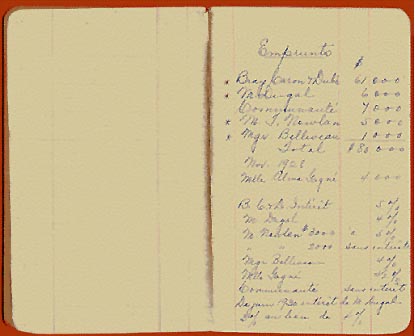 Emprunts
$
* Bray, Caron & Dubé 61,000
* M. Dugal 6000
Communauté 7000
* M. J. Nowlan 5000
* Mgr Belliveau 1000
Total $80000
Nov. 1928
Melle Alma Gagné 4,000
B. C & D. Intérêt 5%
M. Dugal 4%
M. Nowlan $3000 à 5%
" " 2000 sans intérêt
Mgr Belliveau 4%
Melle Gagné
Communauté sans intérêt
Depuis 1930 intérêt de M. Dugal
5% au lieu de 4%